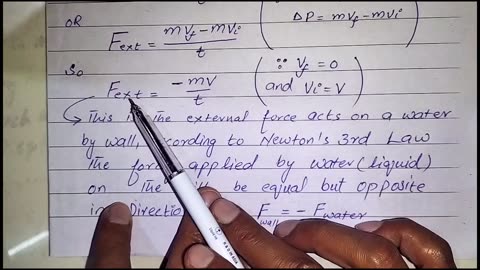 OR
ΔP = mVf - mVi
Fext = mVf - mVi / t
So
Fext = -mV / t
∵ Vf = 0
and Vi = V
This is the external force acts on a water
by wall, according to Newton's 3rd Law
The force applied by water (liquid)
on The will be equal but opposite
in Direction F wall = - Fwater